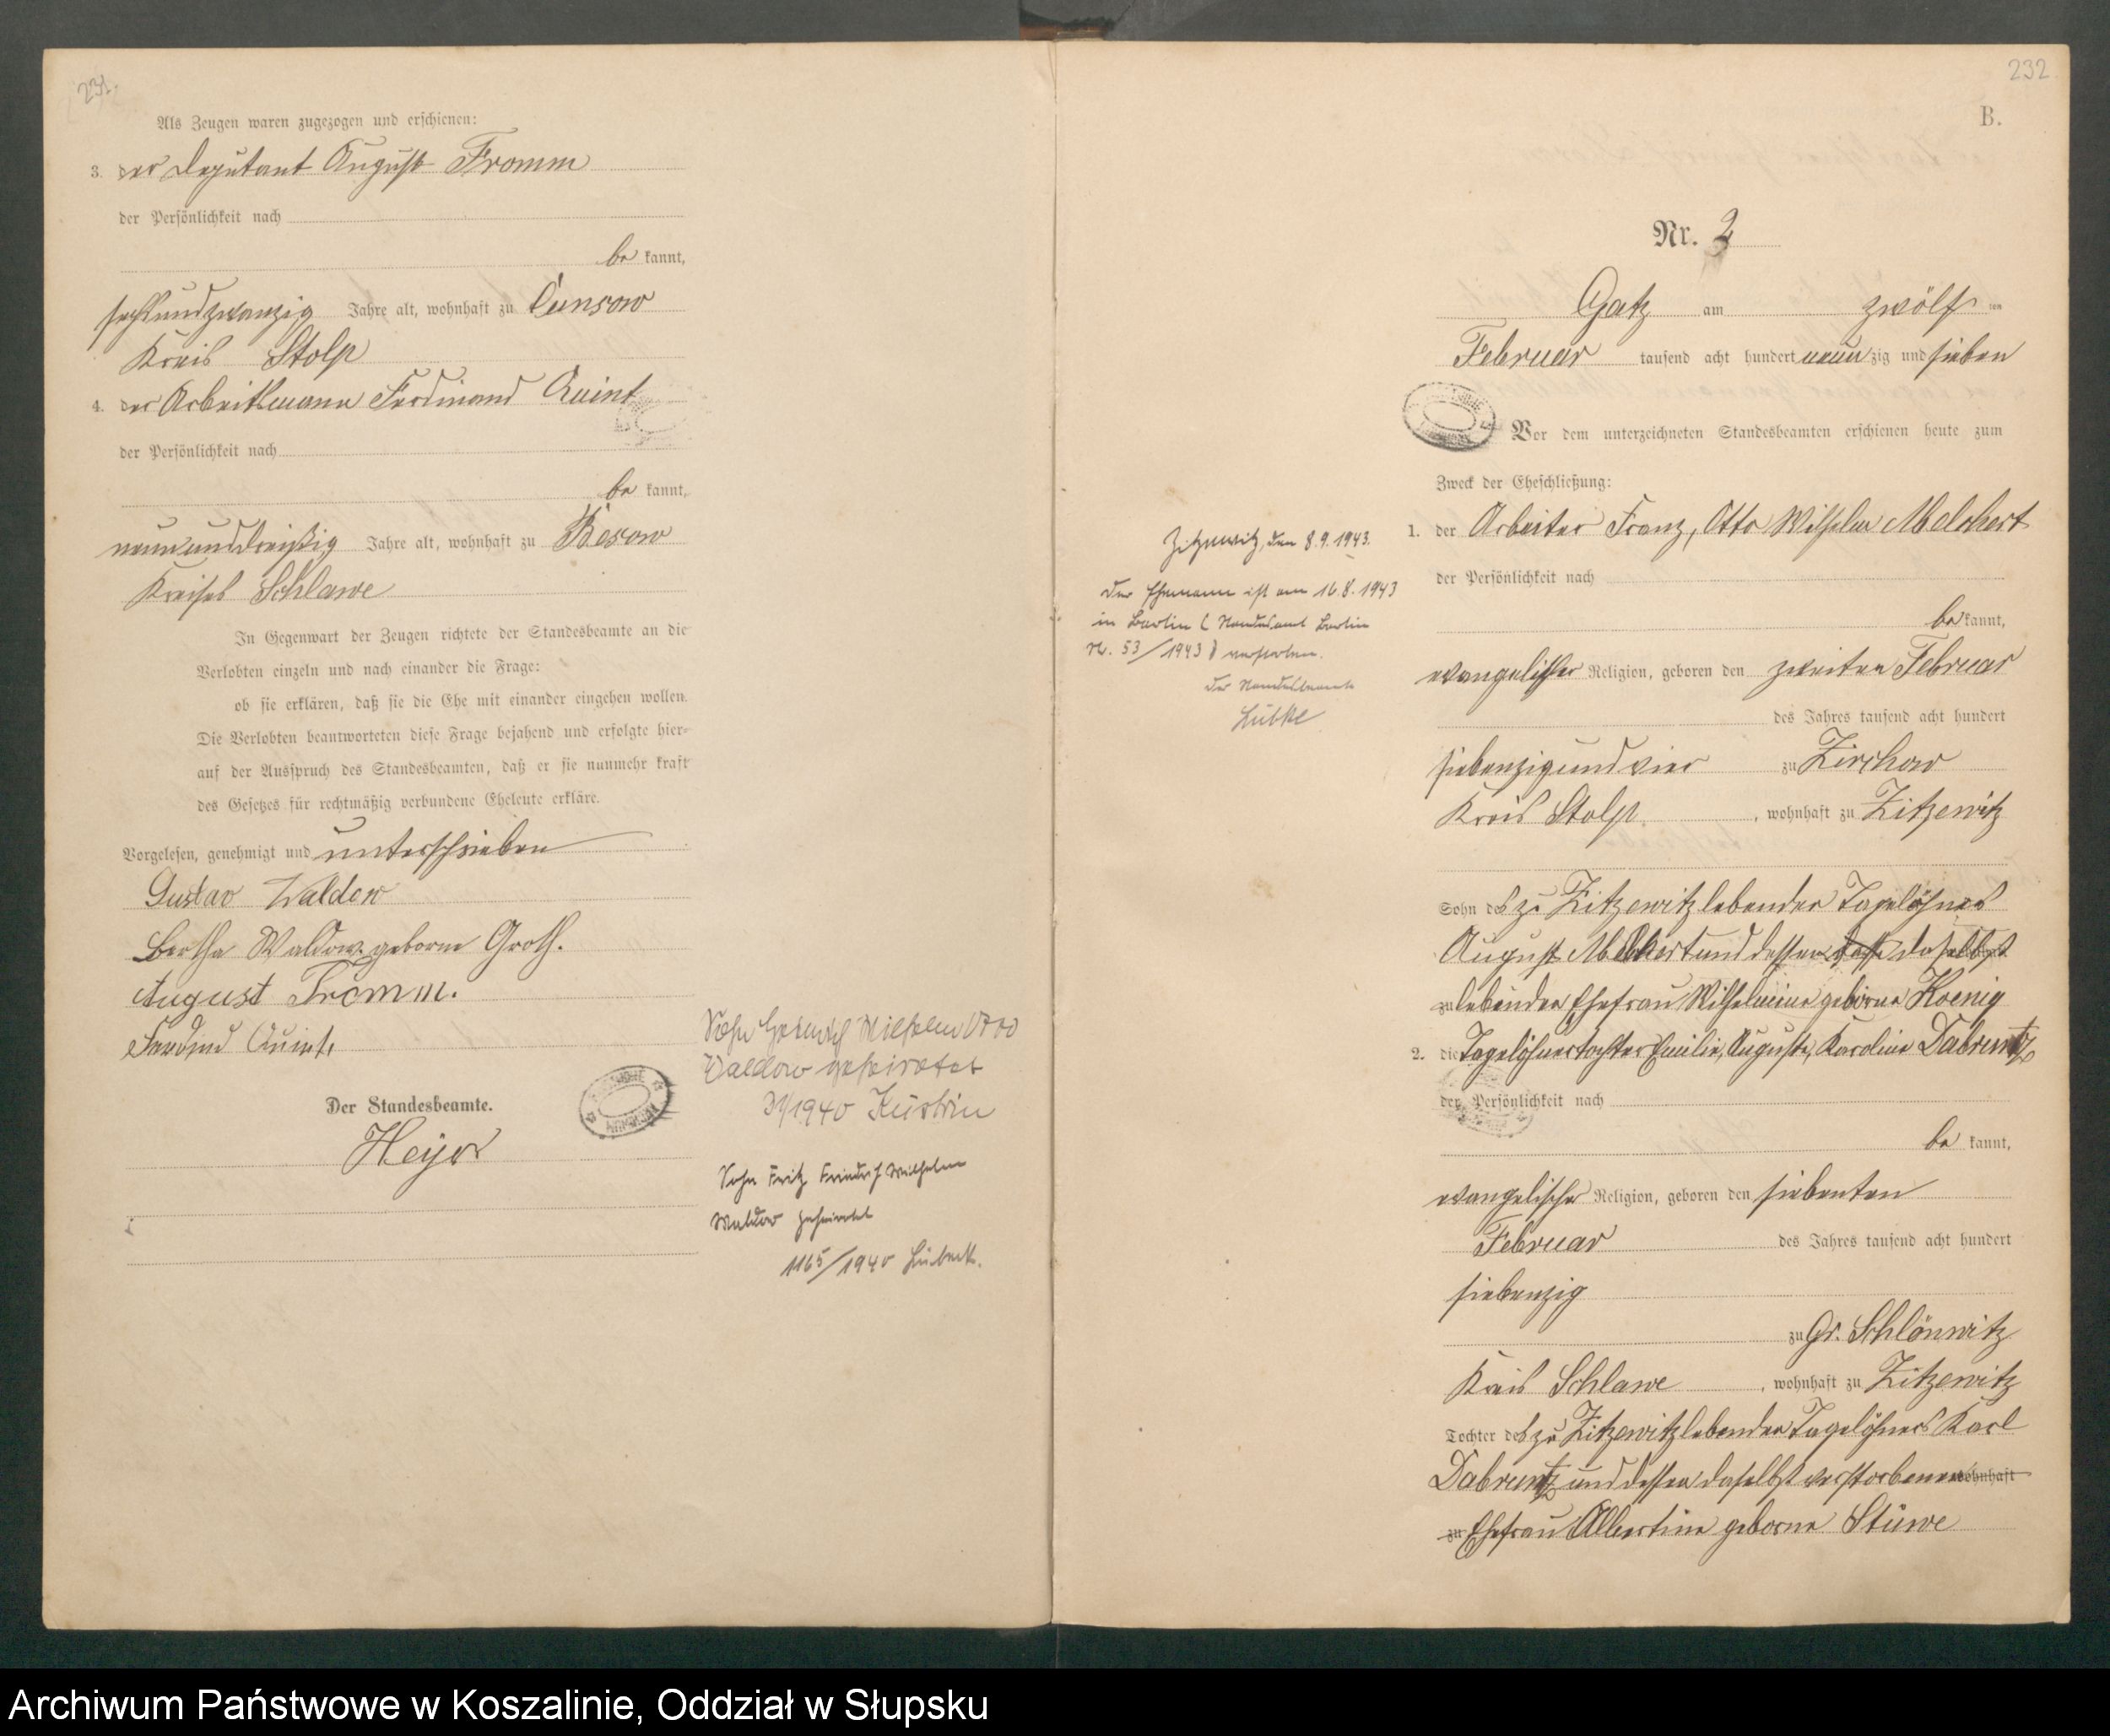 231.
Als Zeugen waren zugezogen und erschienen:
3. der Deputant August Fromm
der Persönlichkeit nach
be kannt,
sechsundzwanzig Jahre alt, wohnhaft zu Cunsow
Kreis Stolp
4. der Arbeitsmann Ferdinand Quint
der Persönlichkeit nach
be kannt,
neununddreißig Jahre alt, wohnhaft zu Besow
Kreises Schlawe
In Gegenwart der Zeugen richtete der Standesbeamte an die
Verlobten einzeln und nach einander die Frage:
ob sie erklären, daß sie die Ehe mit einander eingehen wollen.
Die Verlobten beantworteten diese Frage bejahend und erfolgte hier-
auf der Ausspruch des Standesbeamten, daß er sie nunmehr kraft
des Gesetzes für rechtmäßig verbundene Eheleute erkläre.
Vorgelesen, genehmigt und unterschrieben
Gustav Waldow
Bertha Waldow geborne Groth.
August Fromm.
Quint.
Der Standesbeamte.
Heyer
Sohn Wilhelm
Waldow geheiratet
1940 Küstrin
Sohn Fritz Friedrich Wilhelm
Waldow geheiratet
1165/1940 Lübeck.
232
B.
Nr. 2
Gatz am zwölften
Februar tausend acht hundert neun zig und sieben
Vor dem unterzeichneten Standesbeamten erschienen heute zum
Zweck der Eheschließung:
1. der Arbeiter Franz, Otto Wilhelm Melchert
der Persönlichkeit nach
be kannt,
evangelischer Religion, geboren den zweiten Februar
des Jahres tausend acht hundert
siebenzig und vier zu Zirchow
Kreis Stolp, wohnhaft zu Zitzewitz
Sohn des zu Zitzewitz lebenden Tagelöhners
August Melchert und dessen daselbst
zu lebenden Ehefrau Wilhelmine geborne Koenig
2. die Tagelöhnertochter Emilie, Auguste, Karoline Dabruntz
der Persönlichkeit nach
be kannt,
evangelischer Religion, geboren den siebenten
Februar des Jahres tausend acht hundert
siebenzig
zu Gr. Schlönwitz
Kreis Schlawe, wohnhaft zu Zitzewitz
Tochter des zu Zitzewitz lebenden Tagelöhners Karl
Dabruntz und dessen daselbst verstorbenen wohnhaft
zu Ehefrau Albertine geborne Stüwe
Zitzewitz, den 8.9.1943.
Der Ehemann ist am 16.8.1943
in Berlin (Standesamt Berlin
Nr. 53/1943) verstorben.
Der Standesbeamte
Lübke
Archiwum Państwowe w Koszalinie, Oddział w Słupsku